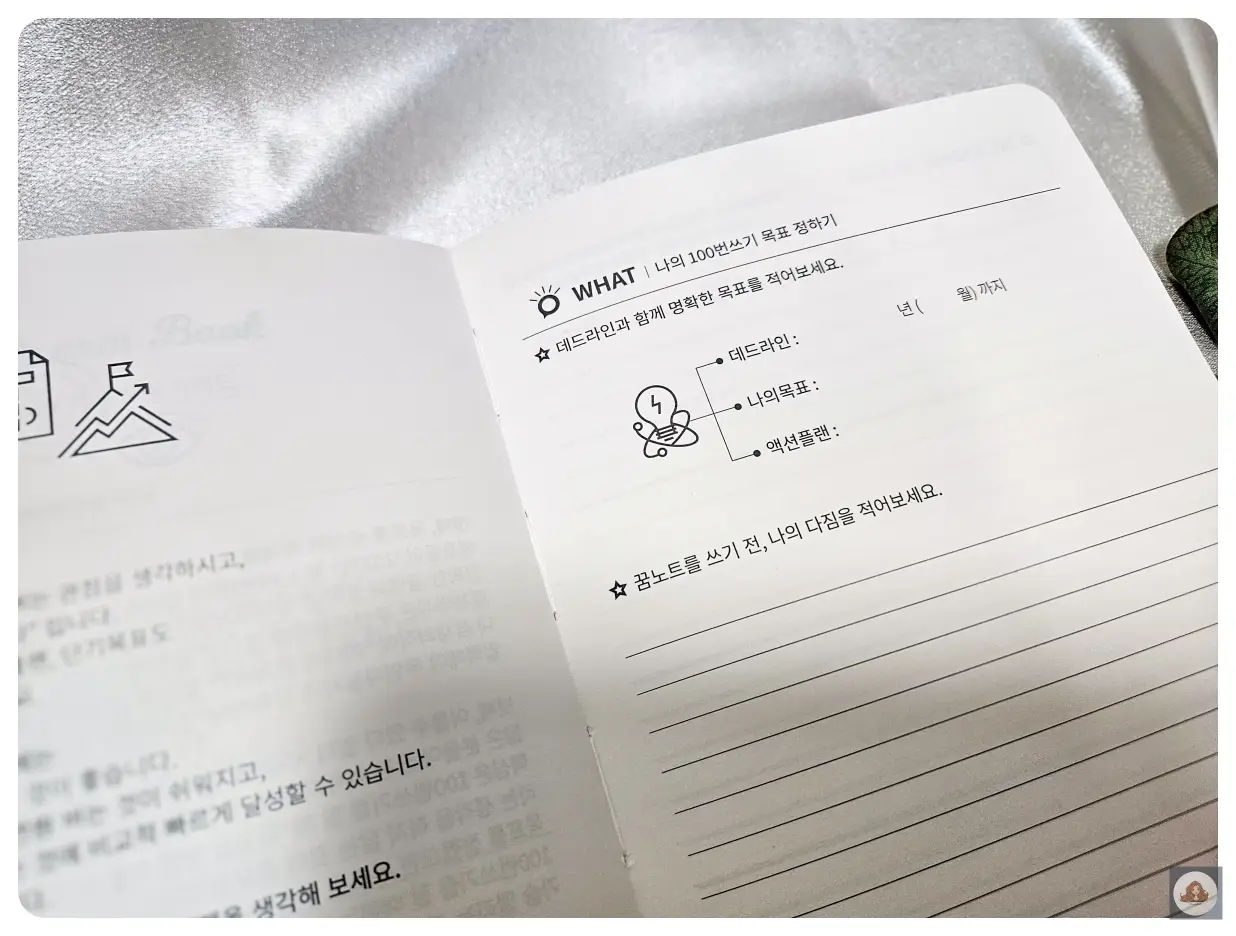 관점을 생각하시고,
입니다.
단기목표도
것이 좋습니다.
하는 것이 쉬워지고,
것에 비교적 빠르게 달성할 수 있습니다.
생각해 보세요.
WHAT | 나의 100번쓰기 목표 정하기
☆ 데드라인과 함께 명확한 목표를 적어보세요.
데드라인 : 년 ( 월) 까지
나의목표 :
액션플랜 :
☆ 꿈노트를 쓰기 전, 나의 다짐을 적어보세요.